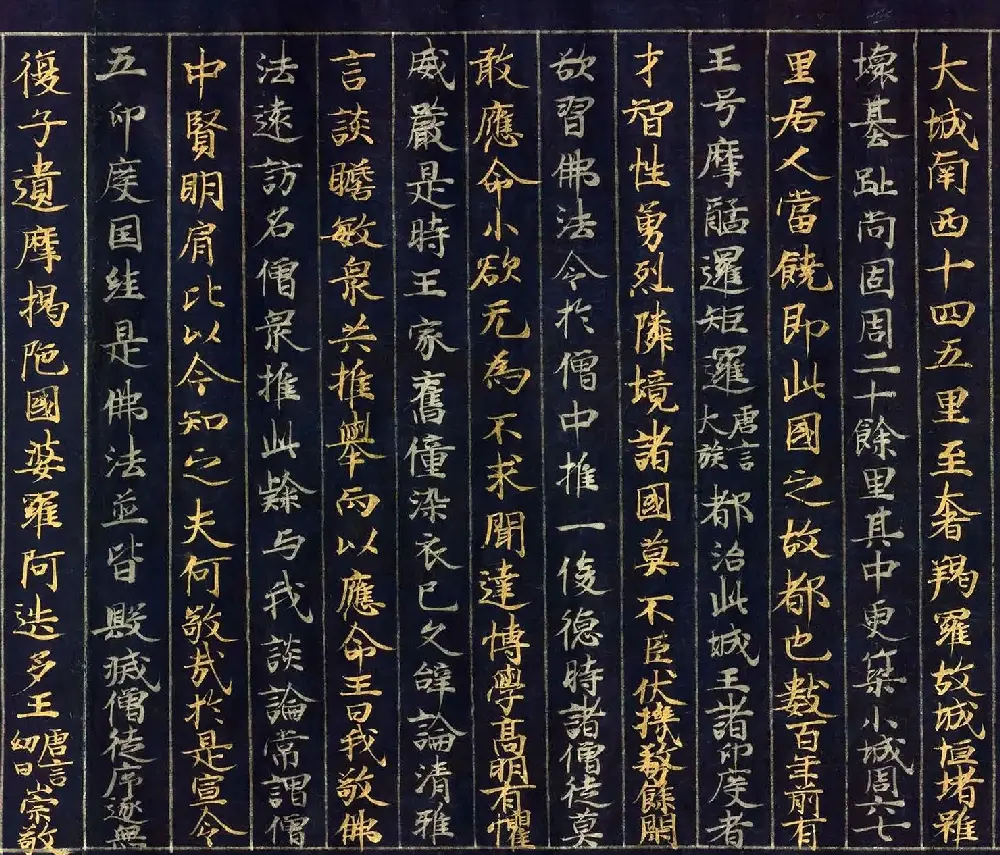 大城南西十四五里至奢羯羅故城垣堵雖
壞基趾尚固周二十餘里其中更築小城周六七
里居人富饒即此國之故都也數百年前有
王号摩醯邏矩邏唐言大族都治此城王諸印度者
才智性勇烈隣境諸國莫不臣伏機務餘閑
欲習佛法令於僧中推一俊德時諸僧徒莫
敢應命少欲无為不求聞達博學高明有懼
威嚴是時王家舊僮染衣已久辭論清雅
言談贍敏衆共推舉而以應命王曰我敬佛
法遠訪名僧衆推此隸与我談論常謂僧
中賢明肩比以今知之夫何敬哉於是宣令
五印度国継是佛法並皆毀滅僧徒斥逐無
復孑遺摩揭陁國婆羅阿迭多王唐言幻日崇敬